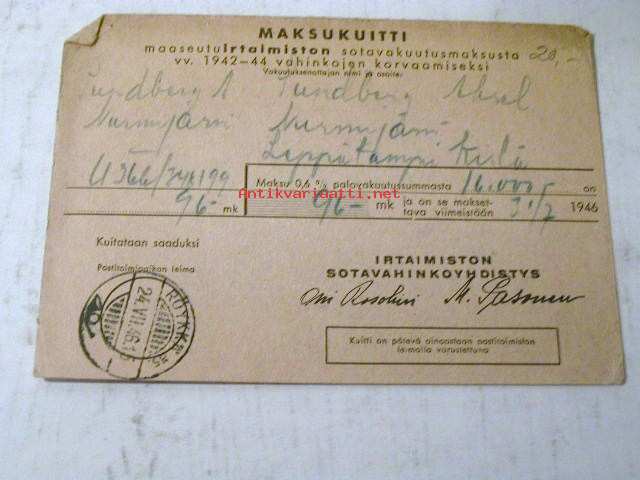 MAKSUKUITTI
maaseutuirtaimiston sotavakuutusmaksusta 20,-
vv. 1942—44 vahinkojen korvaamiseksi
Vakuutuksenottajan nimi ja osoite:
Tundberg A Tundberg Aksel
Nurmijärvi Nurmijärvi
Leppälampi Kylä
Maksu 0,6 % palovakuutussummasta 16.000 on
Antikvariaatti.net
96- mk 96- mk ja on se makset-
tava viimeistään 31/7 1946
Kuitataan saaduksi
Postitoimipaikan leima
IRTAIMISTON
SOTAVAHINKOYHDISTYS
RÖYKKÄ
24.VII.46
Kuitti on pätevä ainoastaan postitoimiston
leimalla varustettuna